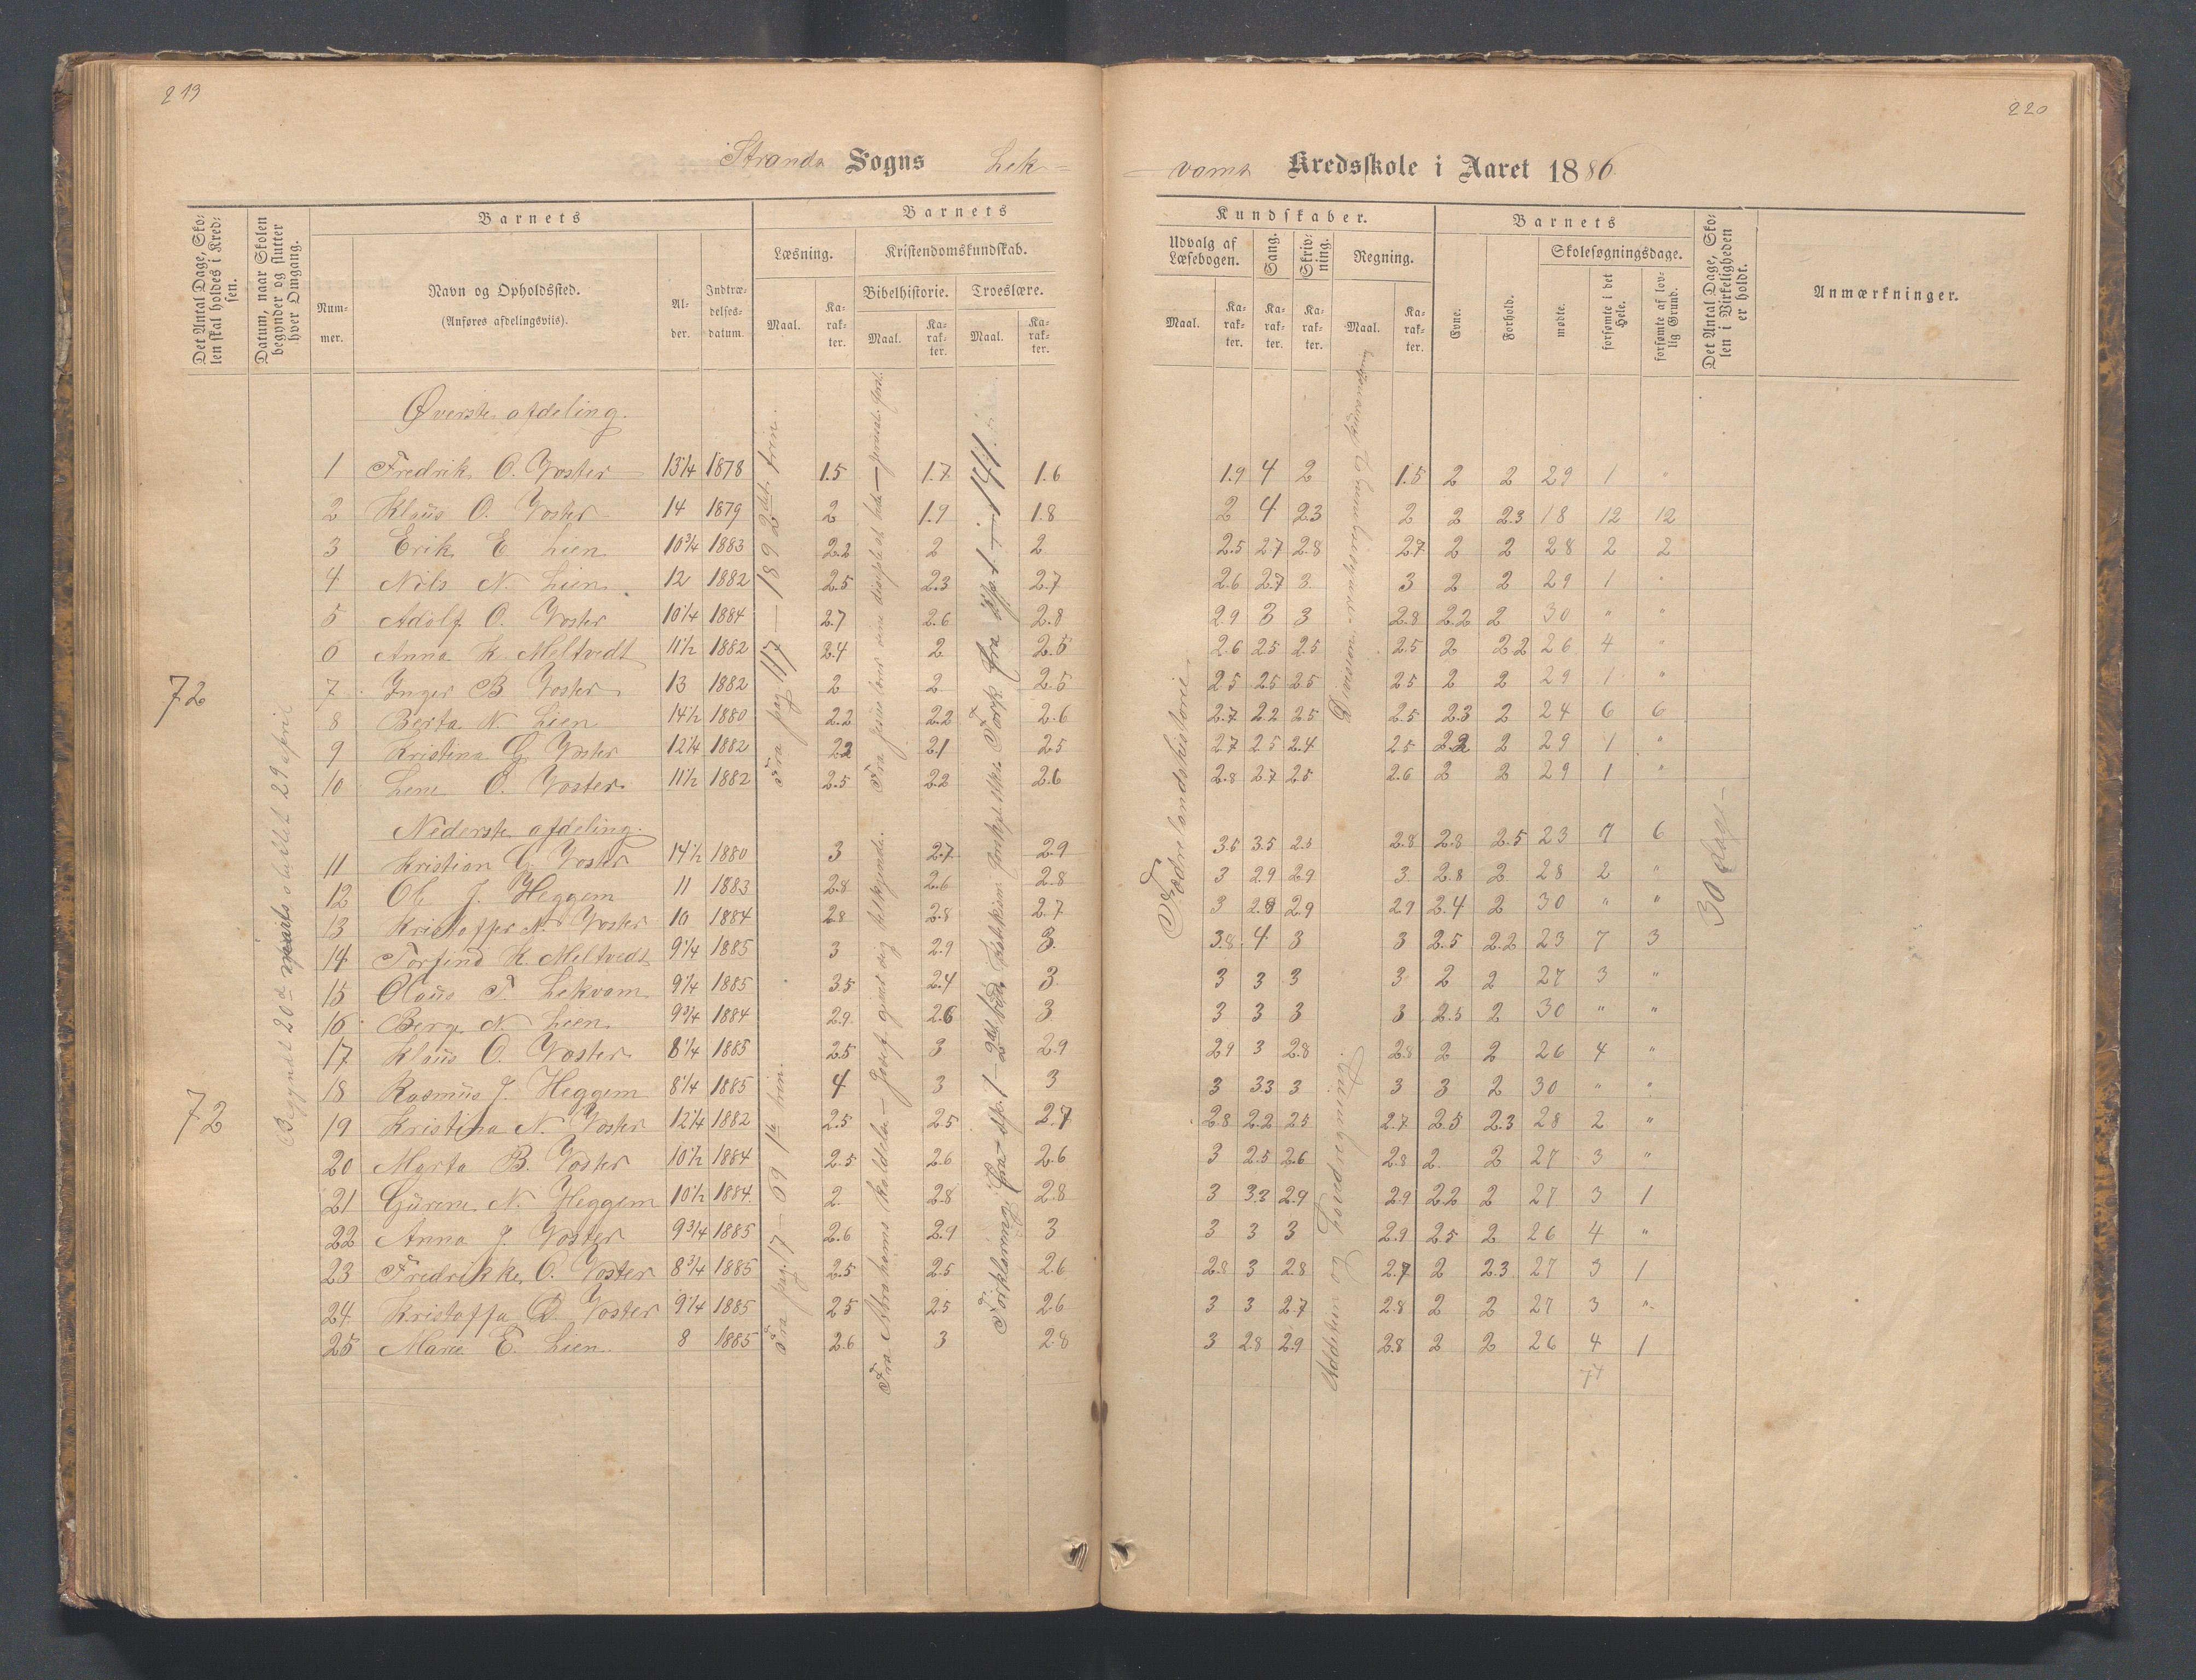 219
220
Stranda Sogns Lek=
=vams Kredsskole i Aaret 1886
Det Antal Dage, Skolen skal holdes i Kredsen.
Datum, naar Skolen begynder og slutter hver Omgang.
Barnets
Nummer.
Navn og Opholdssted.
(Anføres afdelingsviis).
Alder.
Indtrædelses-datum.
Barnets
Læsning.
Maal.
Karakter.
Kristendomskundskab.
Bibelhistorie.
Maal.
Karakter.
Troeslære.
Maal.
Karakter.
Kundskaber.
Udvalg af Læsebogen.
Maal.
Karakter.
Sang.
Karakter.
Skrivning.
Karakter.
Regning.
Maal.
Karakter.
Barnets
Evne.
Forhold.
Skolesøgningsdage.
mødte.
forsømte i det Hele.
forsømte af lovlig Grund.
Det Antal Dage, Skolen i Virkeligheden er holdt.
Anmærkninger.
Øverste afdeling.
1 Fredrik O. Voster 13 1/4 1878 1.5 1.7 1.6 1.9 4 2 1.5 2 2 29 1 "
2 Klaus O. Voster 14 1879 2 1.9 1.8 2 4 2.3 2 2 2.3 18 12 12
3 Erik E Lien 10 3/4 1883 2.2 2 2 2.5 2.7 2.8 2.7 2 2 28 2 2
4 Nils N. Lien 12 1882 2.5 2.3 2.7 2.6 2.7 3 3 2 2 29 1 "
5 Adolf O. Voster 10 1/4 1884 2.7 2.6 2.8 2.9 3 3 2.8 2.2 2 30 " "
6 Anna K. Meltvedt 11 1/2 1882 2.4 2 2.5 2.6 2.5 2.5 2.5 2 2.2 26 4 "
7 Inger B Voster 13 1882 2 2 2.5 2.5 2.5 2.5 2.5 2 2 29 1 "
8 Berta N. Lien 14 1/2 1880 2.2 2.2 2.6 2.7 2.2 2.5 2.5 2.3 2 24 6 6
9 Kristina G. Voster 12 1/4 1882 2.2 2.1 2.5 2.7 2.5 2.4 2.5 2.2 2 29 1 "
10 Lene O. Voster 11 1/2 1882 2.5 2.2 2.6 2.8 2.7 2.5 2.6 2 2 29 1 "
Nederste afdeling.
11 Kristian G. Voster 14 1/2 1880 3 2.7 2.9 3.5 3.5 2.5 2.8 2.8 2.5 23 7 6
12 Ol J. Heggem 11 1883 2.8 2.6 2.8 3 2.9 2.9 3 2.8 2 28 2 "
13 Kristoffer N. Voster 10 1884 2.8 2.8 2.7 3 2.8 2.9 2.9 2.4 2 30 " "
14 Torfind K. Meltvedt 9 1/4 1885 3 2.9 3 3.8 4 3 3 2.5 2.2 23 7 3
15 Olaus T. Lekvam 9 1/4 1885 3.5 2.4 3 3 3 3 3 2 2 27 3 "
16 Berge N. Lien 9 3/4 1884 2.9 2.6 3 3 3 3 3 2.5 2 30 " "
17 Klaus O. Voster 8 1/4 1885 2.5 3 2.9 2.9 3 2.8 2.8 2 2 26 4 "
18 Rasmus J. Heggem 8 1/4 1885 4 3 3 3 3.3 3 3 3 2 30 " "
19 Kristina N. Voster 12 1/4 1882 2.5 2.5 2.7 2.8 2.2 2.5 2.7 2.5 2.3 28 2 "
20 Marta B. Voster 10 1/2 1884 2.5 2.6 2.6 3 2.5 2.6 2.8 2 2 27 3 "
21 Gurene N. Heggem 10 1/2 1884 2 2.8 2.8 3 3.3 2.9 2.9 2.2 2 27 3 1
22 Anna J. Voster 9 3/4 1885 2.6 2.9 3 3 3 3 2.9 2.5 2 26 4 "
23 Fredrikke O. Voster 8 3/4 1885 2.5 2.5 2.6 2.8 3 2.8 2.7 2 2.3 27 3 1
24 Kristoffa O. Voster 9 1/4 1885 2.5 2.5 2.6 3 3 2.7 2.8 2 2 27 3 "
25 Marie E. Lien 8 1885 2.6 3 2.8 3 2.8 2.9 2.8 2 2 26 4 1
72
72
Begyndt 20de sluttet 29 april
Fra pag 117 – 189 2det trin.
Fra pag. 17 – 69 1te trin.
Fra Abrahams kaldelse – Josef giver sig tilkjende.
Fædrelandshistorie
Addition og Hovedregning
30 dage